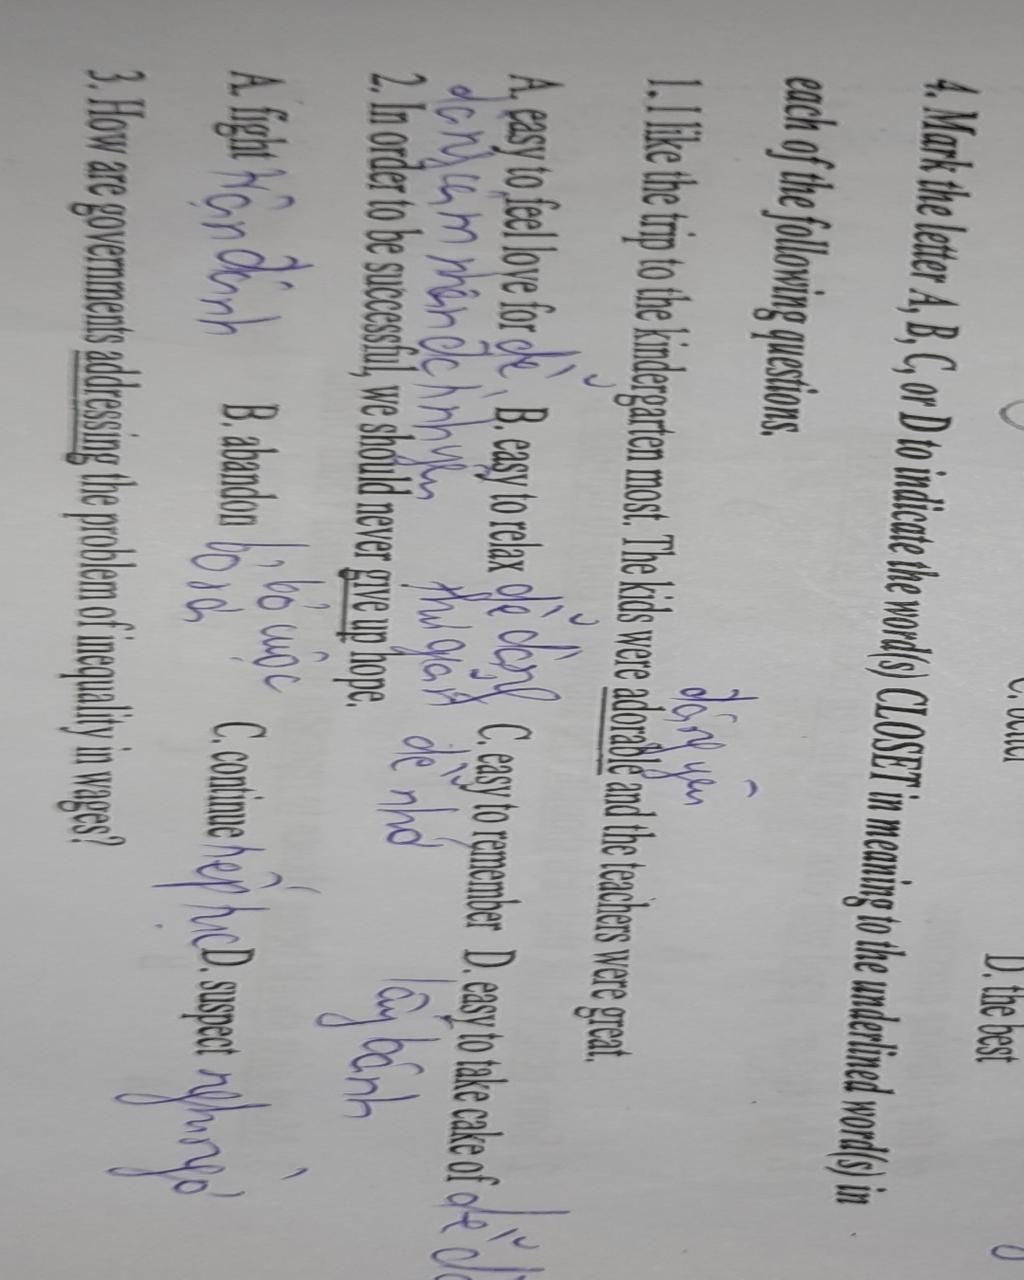 D. the best
4. Mark the letter A, B, C, or D to indicate the word(s) CLOSET in meaning to the underlined word(s) in
each of the following questions.
đáng yêu
1. I like the trip to the kindergarten most. The kids were adorable and the teachers were great.
A. easy to feel love for dễ B. easy to relax dễ dàng C. easy to remember D. easy to take cake of dễ
thư giãn dễ nhớ lấy bánh
2. In order to be successful, we should never give up hope.
A. fight trận đánh B. abandon bỏ cuộc C. continue tiếp tục D. suspect nghi ngờ
3. How are governments addressing the problem of inequality in wages?